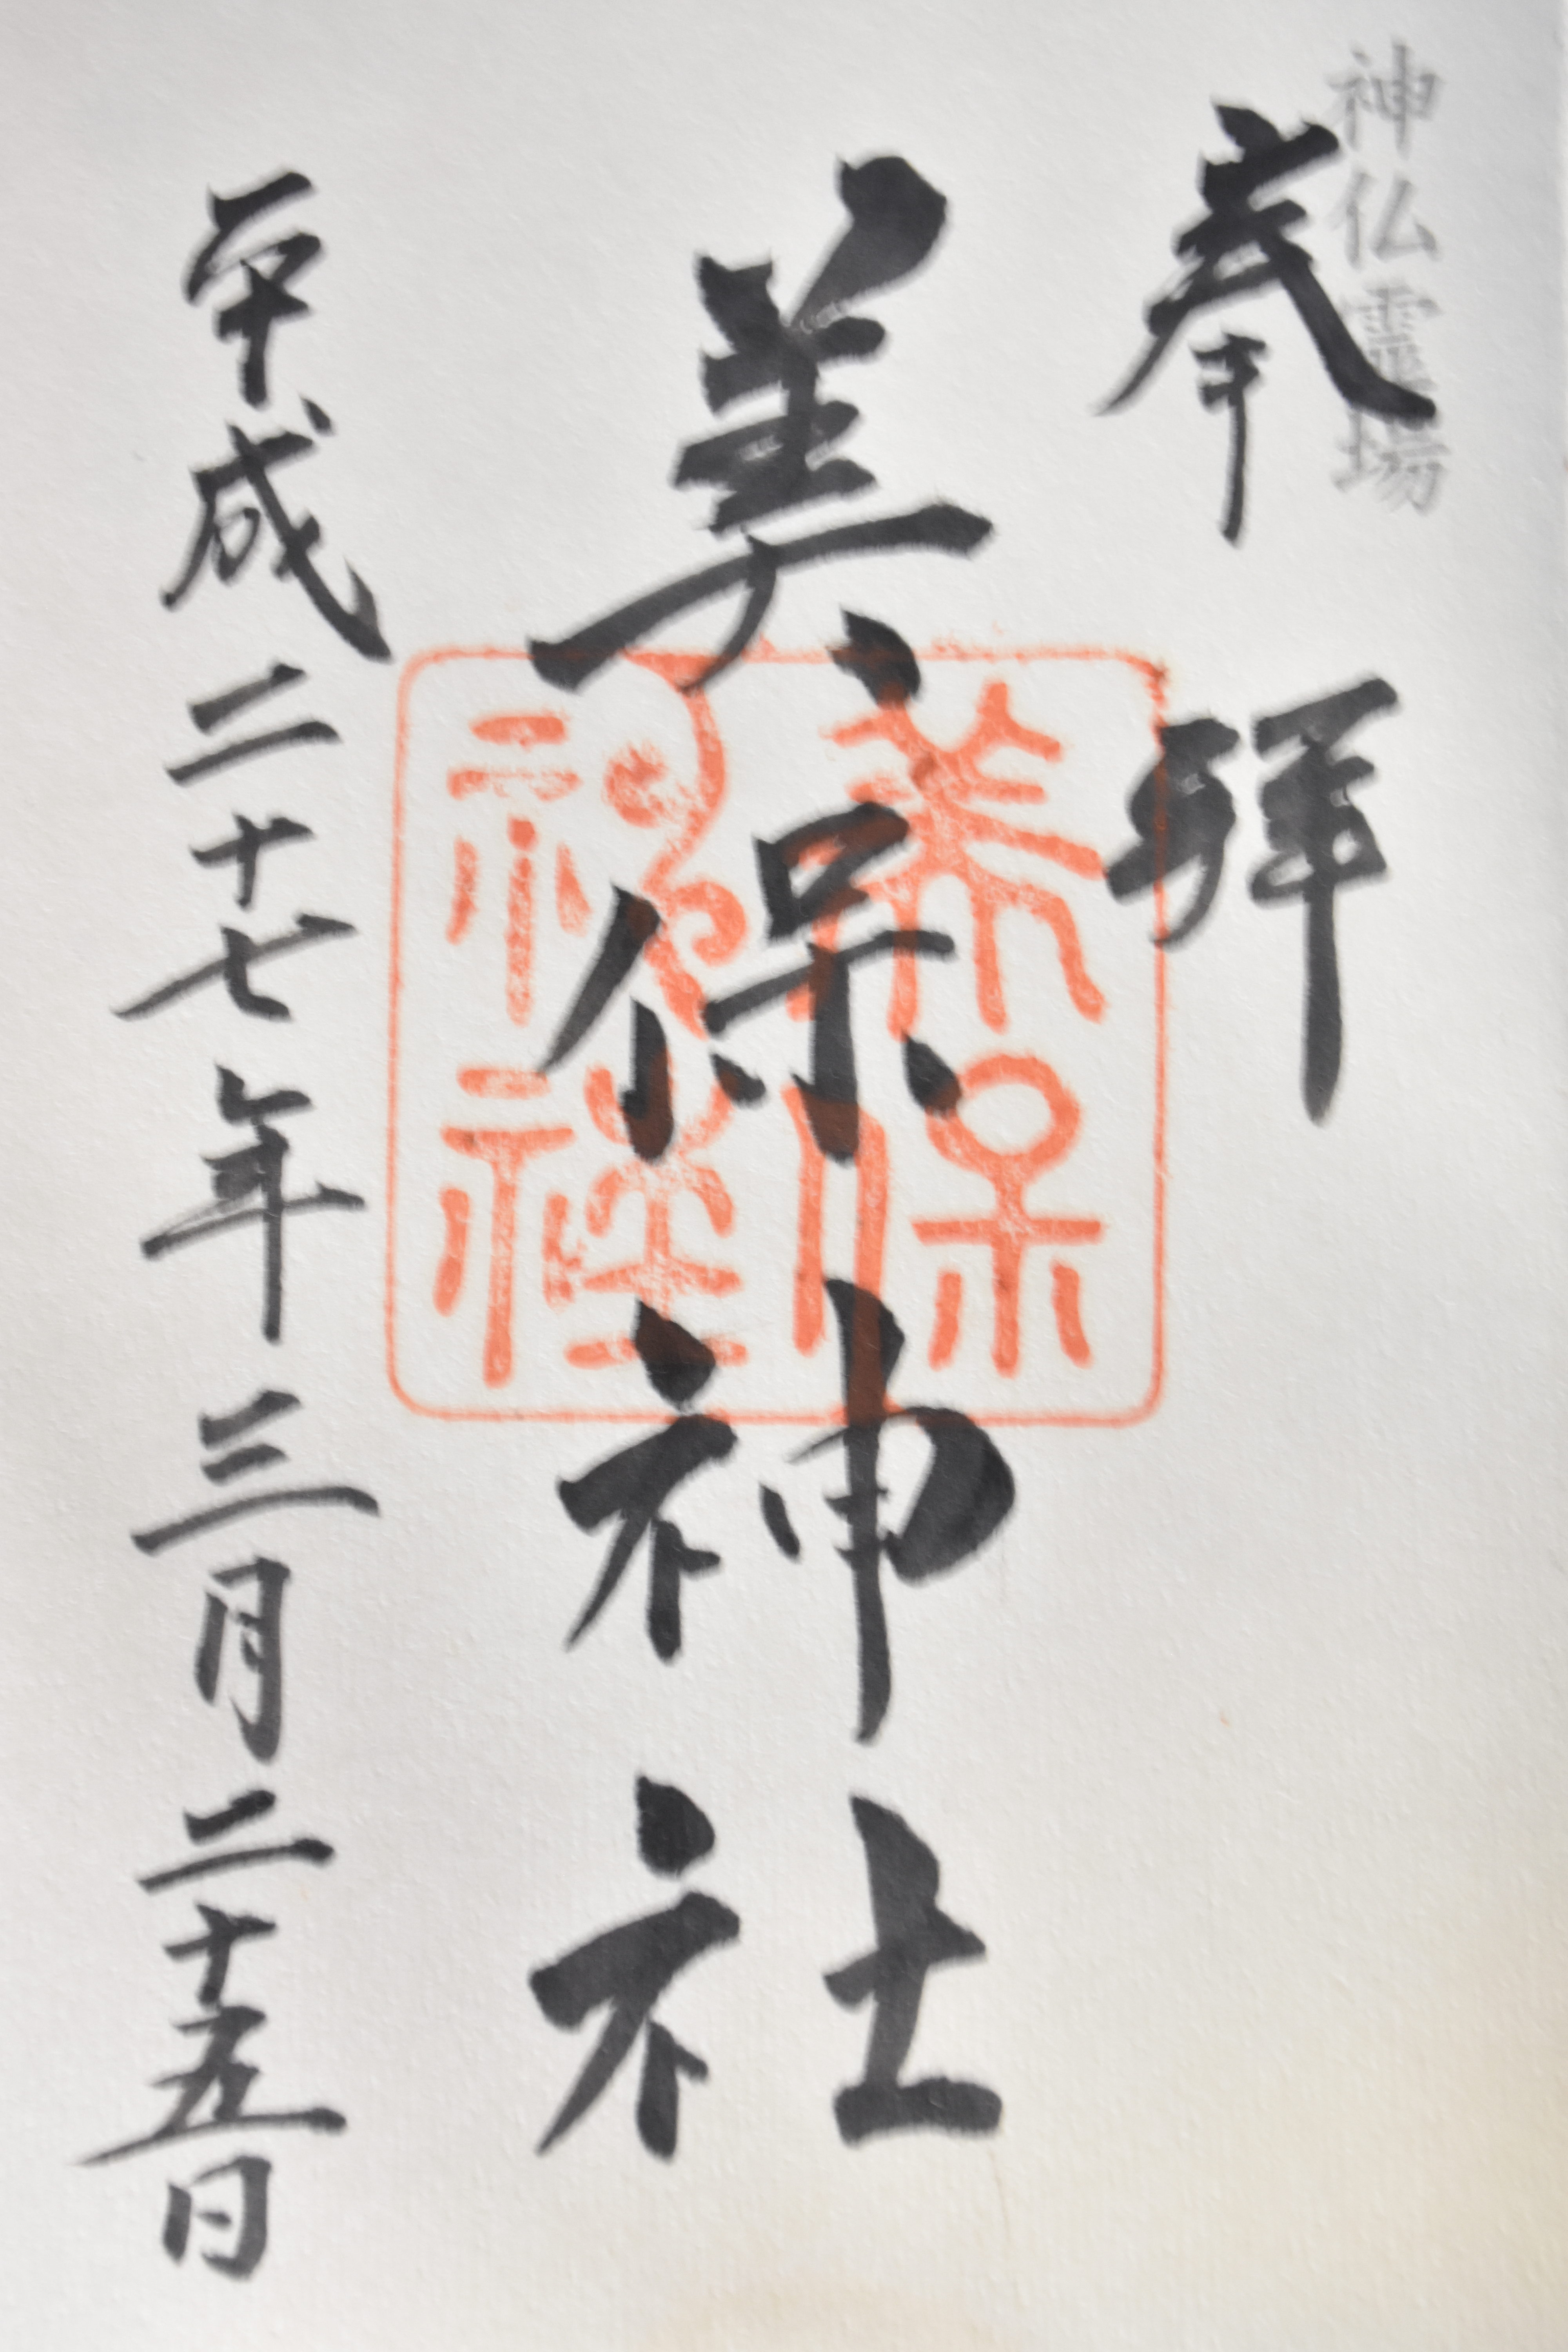 神仏霊場
奉拝
美保神社
美保神社
平成二十七年三月二十五日